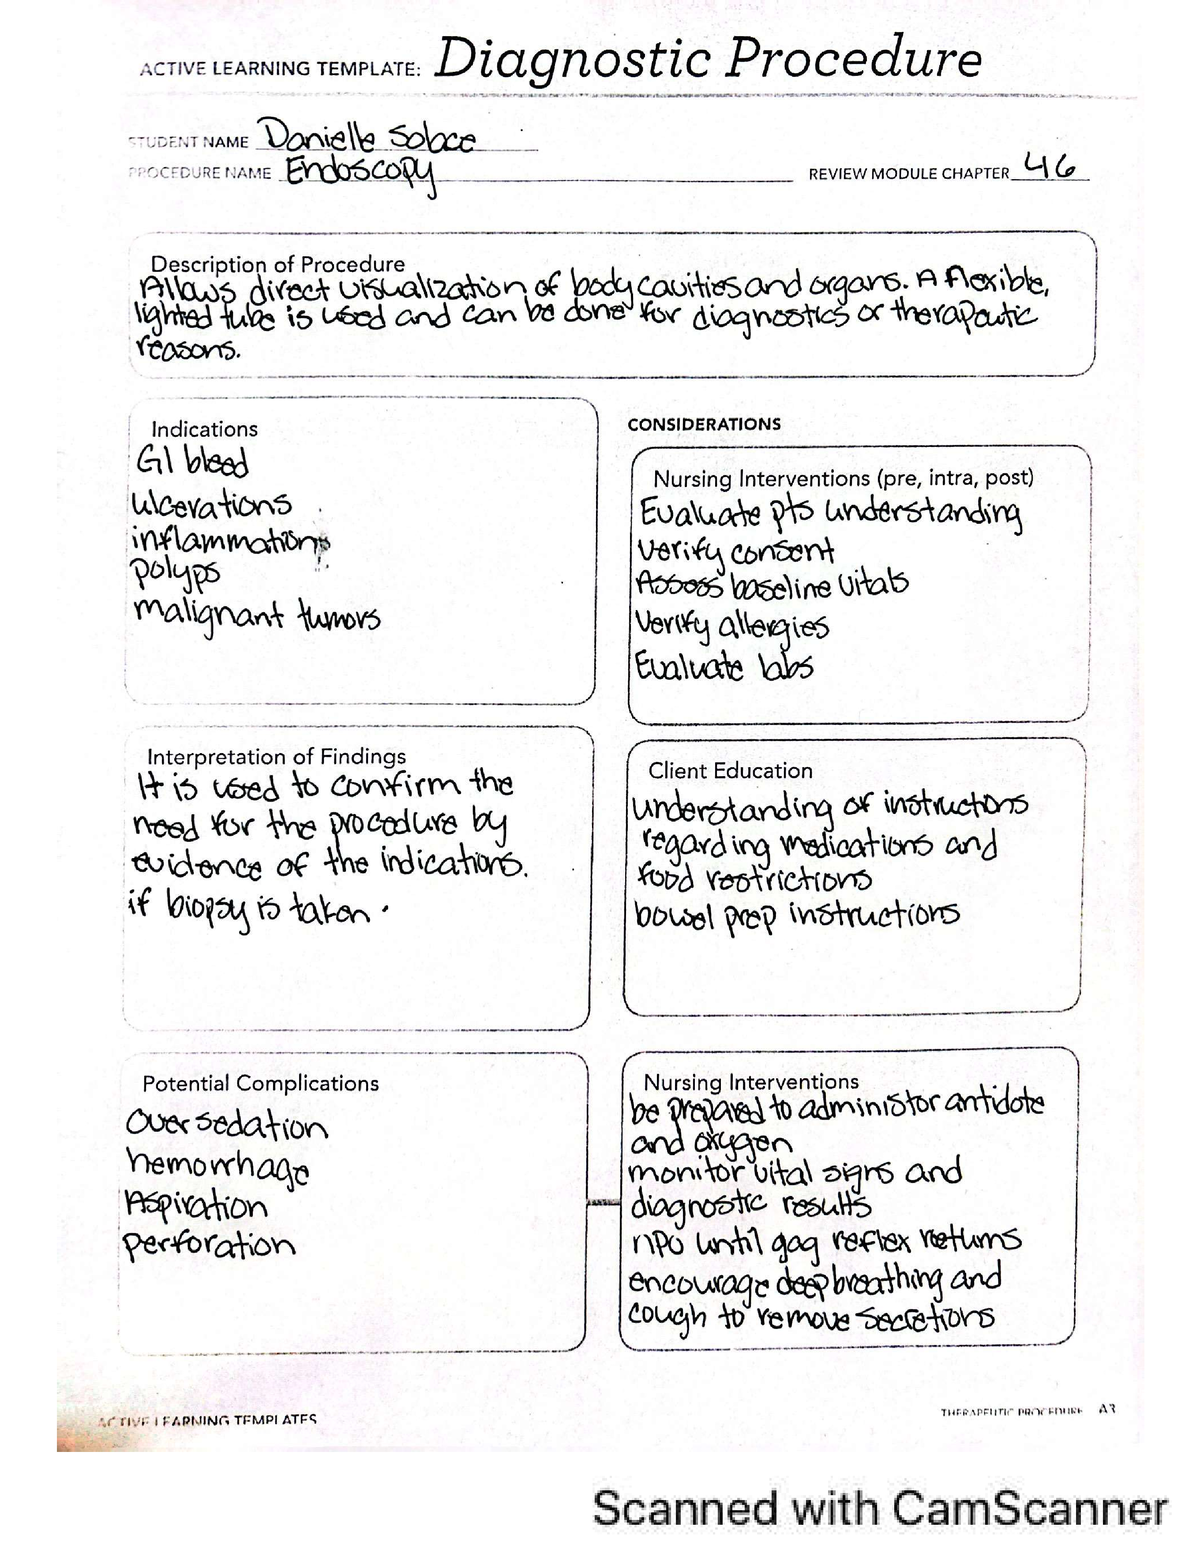 ACTIVE LEARNING TEMPLATE: Diagnostic Procedure
STUDENT NAME Danielle Solace
PROCEDURE NAME Endoscopy
REVIEW MODULE CHAPTER 46
Description of Procedure
Allows direct visualization of body cavities and organs. A flexible,
lighted tube is used and can be done for diagnostics or therapeutic
reasons.
Indications
GI bleed
ulcerations
inflammations
polyps
malignant tumors
CONSIDERATIONS
Nursing Interventions (pre, intra, post)
Evaluate pts understanding
verify consent
Assess baseline vitals
Verify allergies
Evaluate labs
Interpretation of Findings
It is used to confirm the
need for the procedure by
evidence of the indications.
if biopsy is taken.
Client Education
understanding of instructions
regarding medications and
food restrictions
bowel prep instructions
Potential Complications
Over sedation
hemorrhage
Aspiration
perforation
Nursing Interventions
be prepared to administor antidote
and oxygen
monitor vital signs and
diagnostic results
npo until gag reflex returns
encourage deep breathing and
cough to remove secretions
ACTIVE LEARNING TEMPLATES
THERAPEUTIC PROCEDURE A3
Scanned with CamScanner